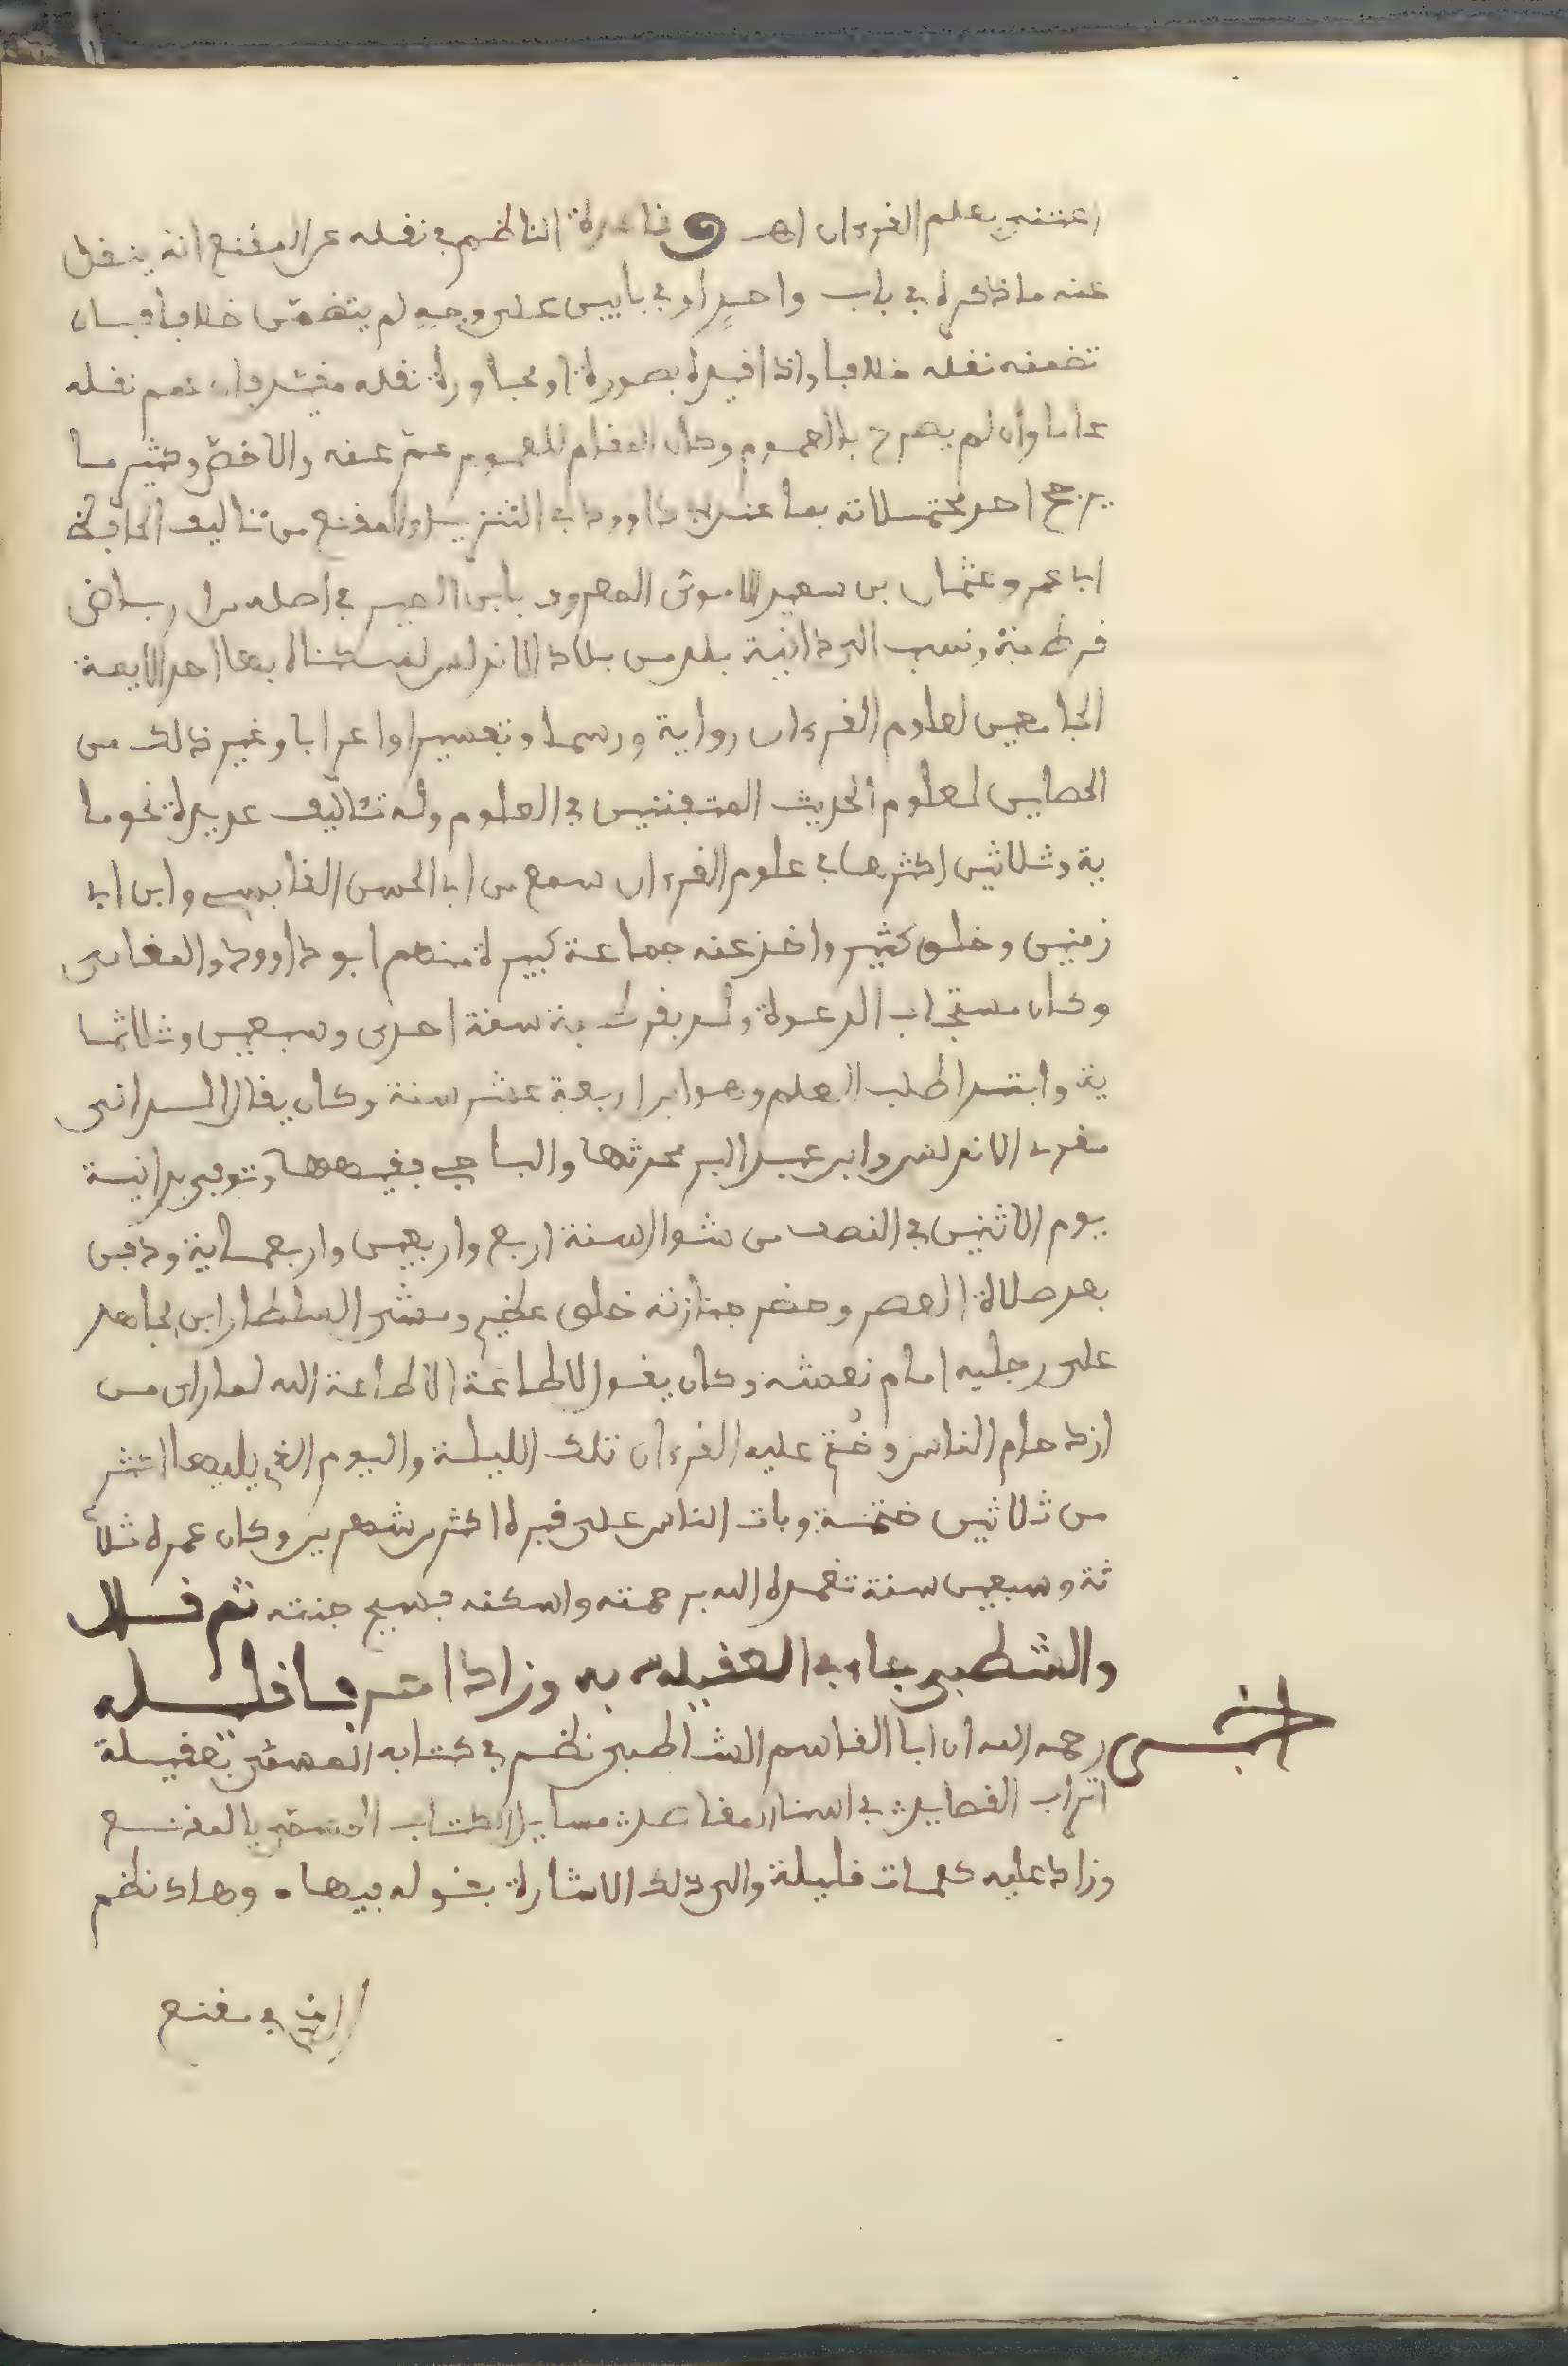 اعتنى بعلم القرءان اهـ وقاعدة الناظم في نقله عن المقنع انه ينقل
عنه ما ذكره في باب واحدٍ او في بابين على وجهٍ لم يتضمن خلافا فان
تضمنه نقله خلافا واذا قيده بصورة او مجاورة نقله مقيدا وان عمم نقله
عاما وان لم يصرح بالعموم وكان المقام للعموم عمّ عنه والا خصّ وكثير ما
يرجح احد محتملاته بما عند ابي داوود في التنزيل والمقنع من تئاليف الحافظ
ابي عمرو عثمان بن سعيد الاموي المعروف بابن الصيرفي اصله من ارباض
قرطبة ونسب الى دانية بلد من بلاد الاندلس لسكناه بها احد الايمة
الجامعين لعلوم القرءان رواية ورسما وتفسيرا واعرابا وغير ذالك من
الحصايين لعلوم الحديث المتفننين في العلوم وله تئاليف عديدة نحو ما
ية وثلاثين اكثرها في علوم القرءان سمع من ابي الحسن القابسي وابن ابي
زمنين وخلق كثير واخذ عنه جماعة كبيرة منهم ابو داوود والمغامي
وكان مستجاب الدعوة ولد بقرطبة سنة احدى وسبعين وثلاثما
ية وابتدا طلب العلم وهو ابن اربعة عشر سنة وكان يقال الداني
مقرء الاندلس وابن عبد البر محدثها والباجي فقيهها وتوفي بدانية
يوم الاثنين في النصف من شوال سنة اربع واربعين واربعماية ودفن
بعد صلاة العصر وحضر جنازته خلق عظيم ومشى السلطان ابن مجاهد
على رجليه امام نعشه وكان يقول لا طاعة الا طاعة الله لما راى من
ازدحام الناس وخُتم عليه القرءان تلك الليلة واليوم الذي يليها اكثر
من ثلاثين ختمة وبات الناس على قبره اكثر من شهرين وكان عمره ثلا
ثة وسبعين سنة تغمده الله برحمته واسكنه فسيح جنته ثم قال
والشطبي جاء في العقيله به وزاد احرفا قليله
اخبر رحمه الله ان ابا القاسم الشاطبي نظم في كتابه المسمى بعقيلة
اتراب القصايد في اسنا المقاصد مسايل الكتاب المسمى بالمقنع
وزاد عليه كلمات قليلة والى ذلك الاشارة بقوله فيها . وهاك نظم
الذي في مقنع